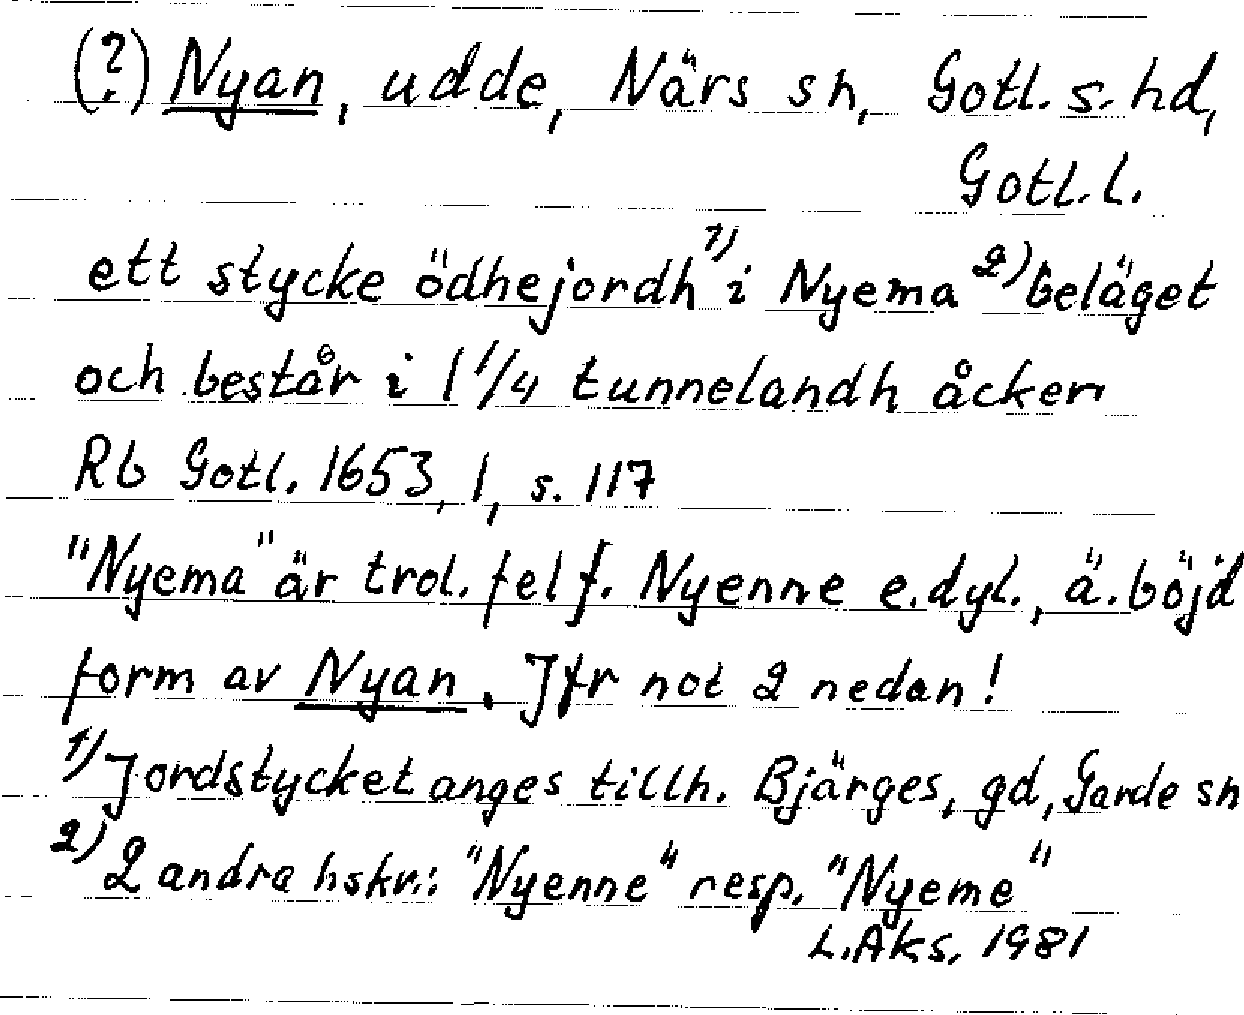 (?) Nyan, udde, Närs sn, Gotl. s. hd,
Gotl. l.
ett stycke ödhejordh 1) i Nyema 2) beläget
och består i 1 1/4 tunnelandh åcker
Rb Gotl. 1653, 1, s. 117
"Nyema" är trol. fel f. Nyenne e.dyl., ä. böjd
form av Nyan. Jfr not 2 nedan!
1) Jordstycket anges tillh. Bjärges, gd, Garde sn
2) 2 andra hskr.: "Nyenne" resp. "Nyeme"
L. Aks. 1981